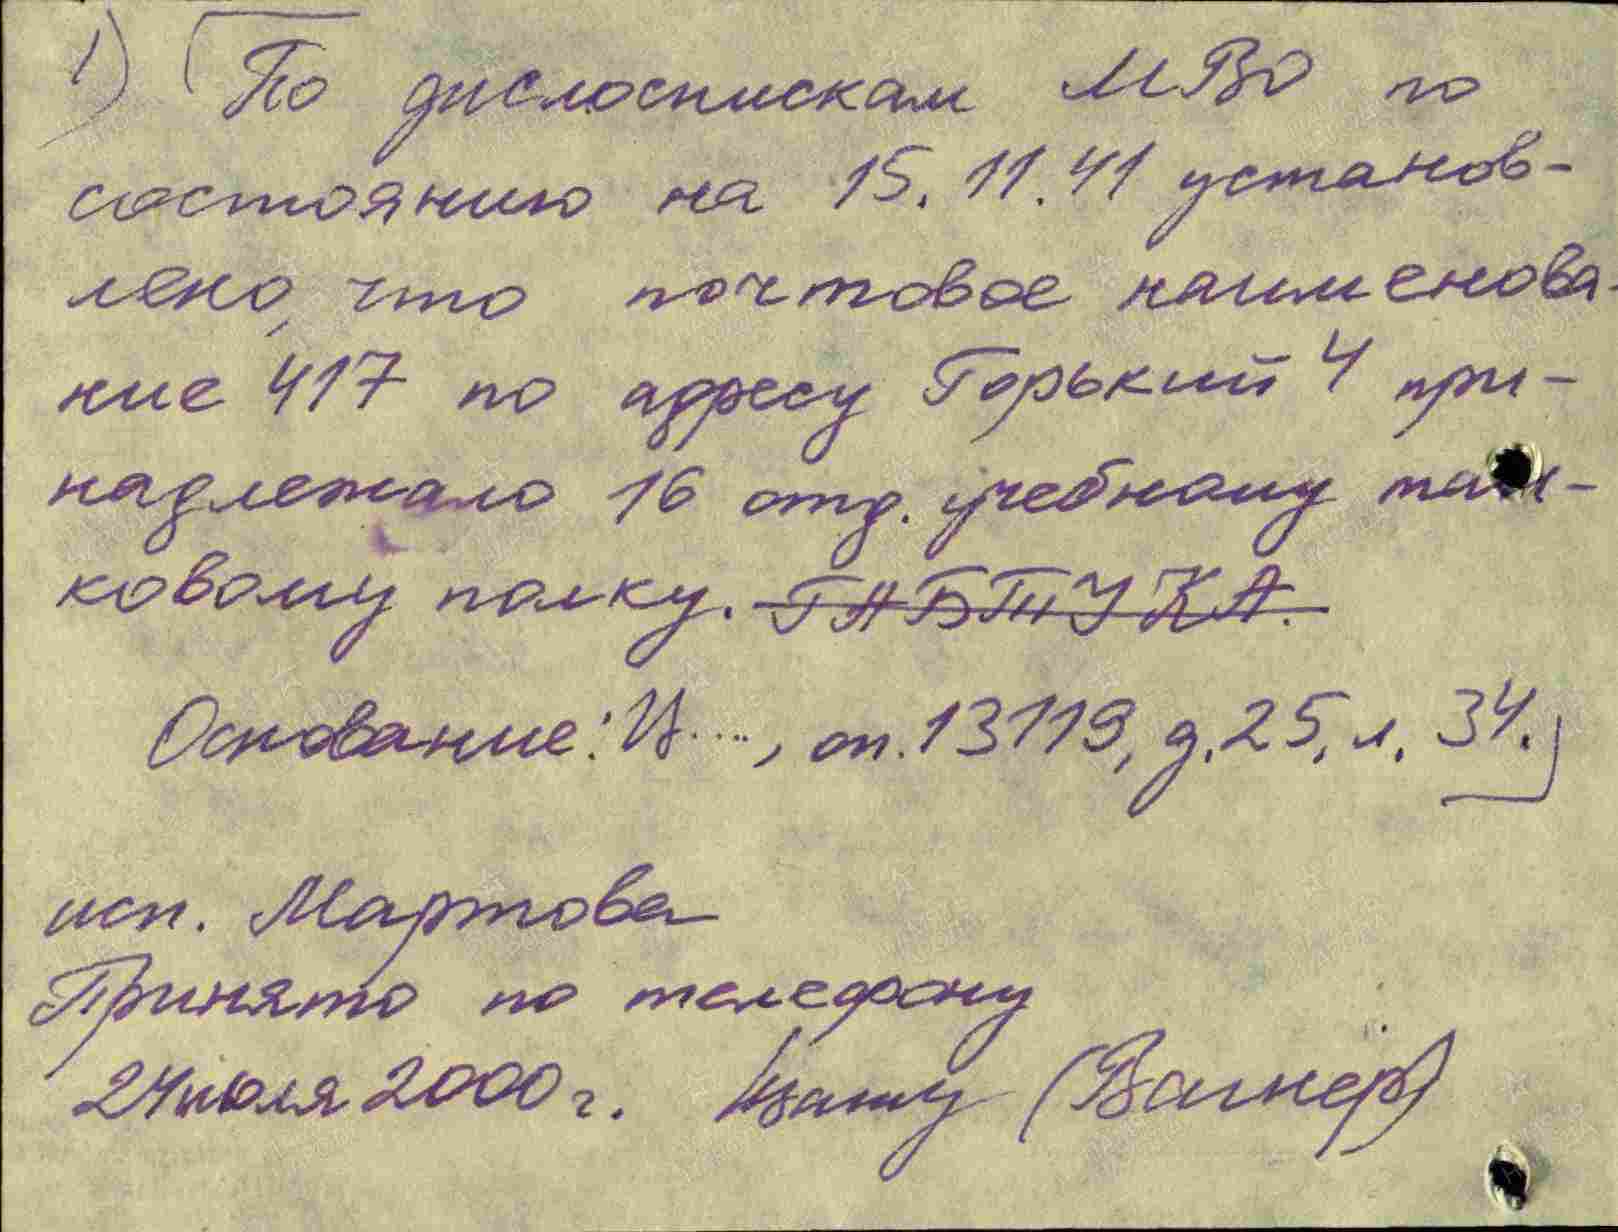 1) По дислоспискам МВО по
состоянию на 15.11.41 установ-
лено, что почтовое наименова-
ние 417 по адресу Горький 4 при-
надлежало 16 отд. учебному тан-
ковому полку. ГАБТУ КА.
Основание: И...., оп. 13119, д. 25, л. 34.
исп. Мартова
Принято по телефону
24 июля 2000 г. (Вагнер)